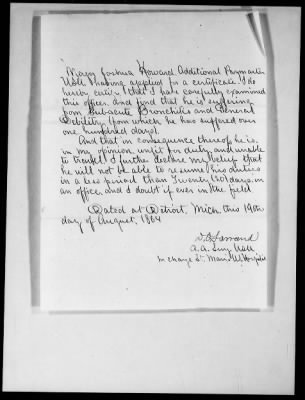 Major Joshua Howard, Additional Paymaster
Vols, having applied for a certificate, I do
hereby certify that I have carefully examined
this officer, and find that he is suffering
from Sub-acute Bronchitis and General
Debility from which he has suffered over
one hundred days.
And that in consequence thereof he is
in my opinion unfit for duty, and unable
to travel. I further declare my belief that
he will not be able to resume his duties
in a less period than Twenty (20) days, in
an office, and I doubt if ever in the field.
Dated at Detroit, Mich. this 19th
day of August, 1864
D. O. Farrand
A. A. Surg USA
In charge St. Mary's U.S. Hospital